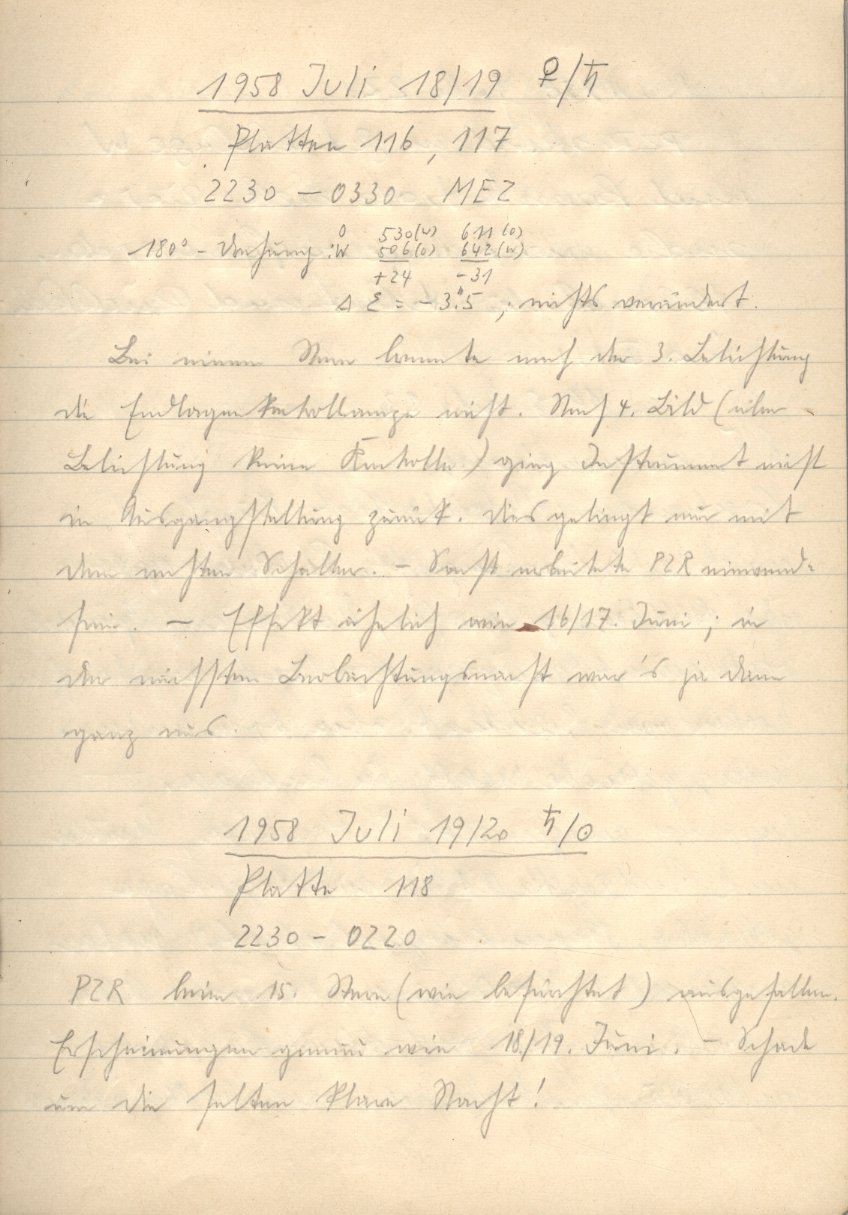 1958 Juli 18/19 ♀/♄
Platten 116, 117
2230 – 0330 MEZ
180° - Drehung: O 530(W) 611(O)
W 506(O) 642(W)
+24 -31
Δ Σ = -3."5, ; nichts verändert.
Bei einem Stern brannte nach der 3. Belichtung
die Endlagenkontrollampe nicht. Nach 4. Bild (
Belichtung keine Kontrolle) ging Instrument nicht
in Ausgangsstellung zurück. Dies gelingt nur mit
dem rechten Schalter. – Sonst arbeitete PZR einwand-
frei. – Effekt ähnlich wie 16/17. Juni; in
der nächsten Beobachtungsnacht war's ja dann
ganz aus.
1958 Juli 19/20 ♄/☉
Platte 118
2230 – 0220
PZR beim 15. Stern (wie befürchtet) ausgefallen.
Erscheinungen genau wie 18./19. Juni. – Schade
um die selten klare Nacht!